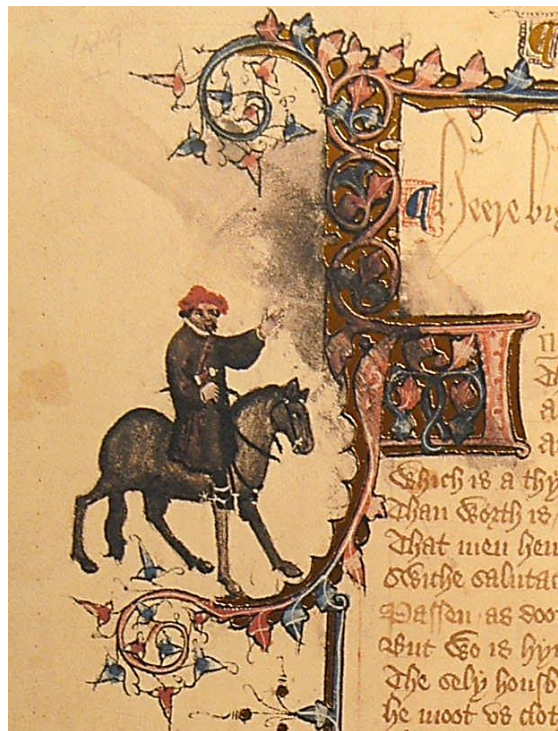 Heere big
Which is a thy
Than worth is
That men hem
Swiche salutac
Passen as doo
But wo is hym
The sely housb
he moot vs clot